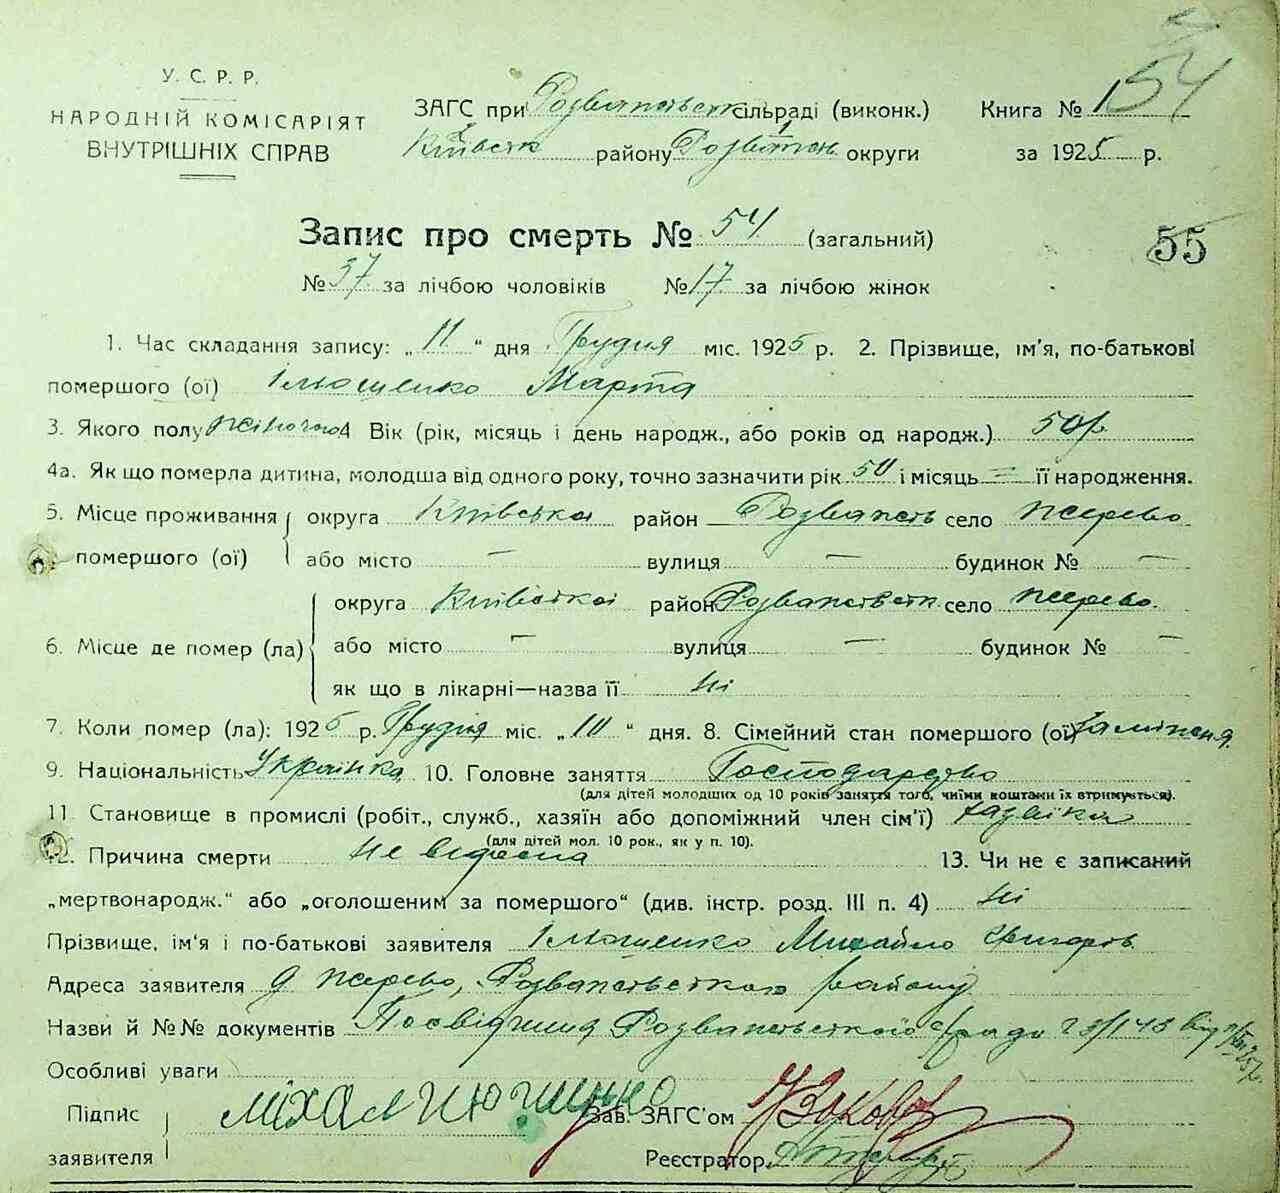 У. С. Р. Р.
НАРОДНІЙ КОМІСАРІЯТ
ВНУТРІШНІХ СПРАВ
ЗАГС при Розважівськ сільраді (виконк.)
Київськ району Розважівськ округи
Книга № 154
за 1925 р.
Запис про смерть № 54 (загальний)
55
№ 37 за лічбою чоловіків № 17 за лічбою жінок
1. Час складання запису: „11“ дня Грудня міс. 1925 р. 2. Прізвище, ім'я, по-батькові
помершого (ої) Ільюшенко Марта
3. Якого полу жіночого 4 Вік (рік, місяць і день народж., або років од народж.) 50 р
4а. Як що померла дитина, молодша від одного року, точно зазначити рік 50 і місяць = її народження.
5. Місце проживання помершого (ої) округа Київська район Розважівськ село Жерево
або місто – вулиця – будинок № –
6. Місце де помер (ла) округа Київської район Розважівськ село Жерево.
або місто – вулиця – будинок № –
як що в лікарні—назва її ні
7. Коли помер (ла): 1925 р. Грудня міс. „10“ дня. 8. Сімейний стан помершого (ої)
9. Національність Українка 10. Головне заняття Господарство
(для дітей молодших од 10 років заняття того, чиїми коштами їх втримується).
11 Становище в промислі (робіт., служб., хазяїн або допоміжний член сім'ї) хазяїка
(для дітей мол. 10 рок., як у п. 10).
12. Причина смерти не відома 13. Чи не є записаний
„мертвонародж.“ або „оголошеним за помершого“ (див. інстр. розд. III п. 4) ні
Прізвище, ім'я і по-батькові заявителя Ільюшенко Михайло Григоров.
Адреса заявителя с Жерево, Розважівського району
Назви й №№ документів Посвідчення Розважівської с/ради
Особливі уваги
Підпис заявителя
Зав. ЗАГС'ом
Реєстратор